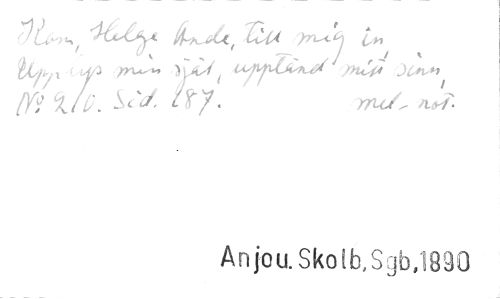 Kom, Helge Ande, till mig in,
Upplys min själ, upptänd mitt sinn,
No 210. Sid. 187. mel. not.
Anjou. Skolb, Sgb, 1890